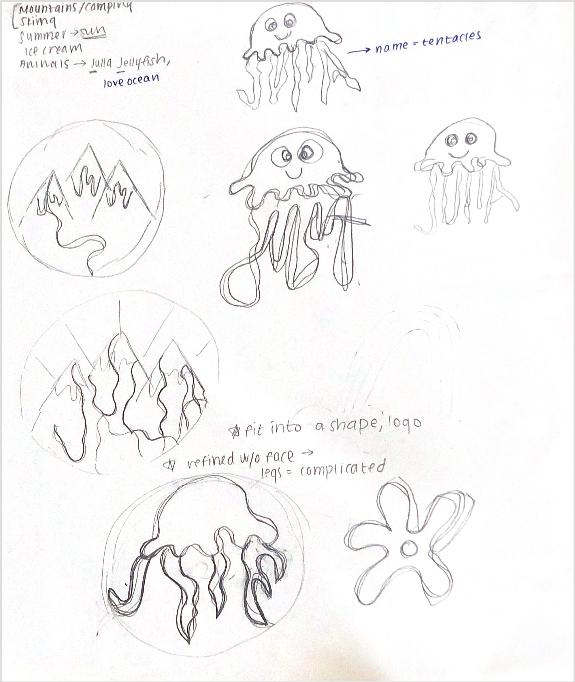 Mountains/camping
Skiing
Summer → sun
ice cream
Animals → Julia Jellyfish,
love ocean
→ name = tentacles
☆ fit into a shape, logo
☆ refined w/o face →
legs = complicated